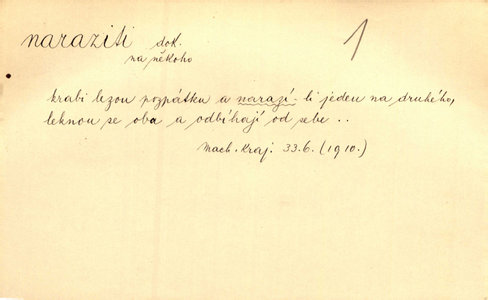 naraziti dok. 1
na někoho
krabi lezou pozpátku a narazí-li jeden na druhého,
leknou se oba a odbíhají od sebe ..
Mach. Kraj. 33.6. (1910.)